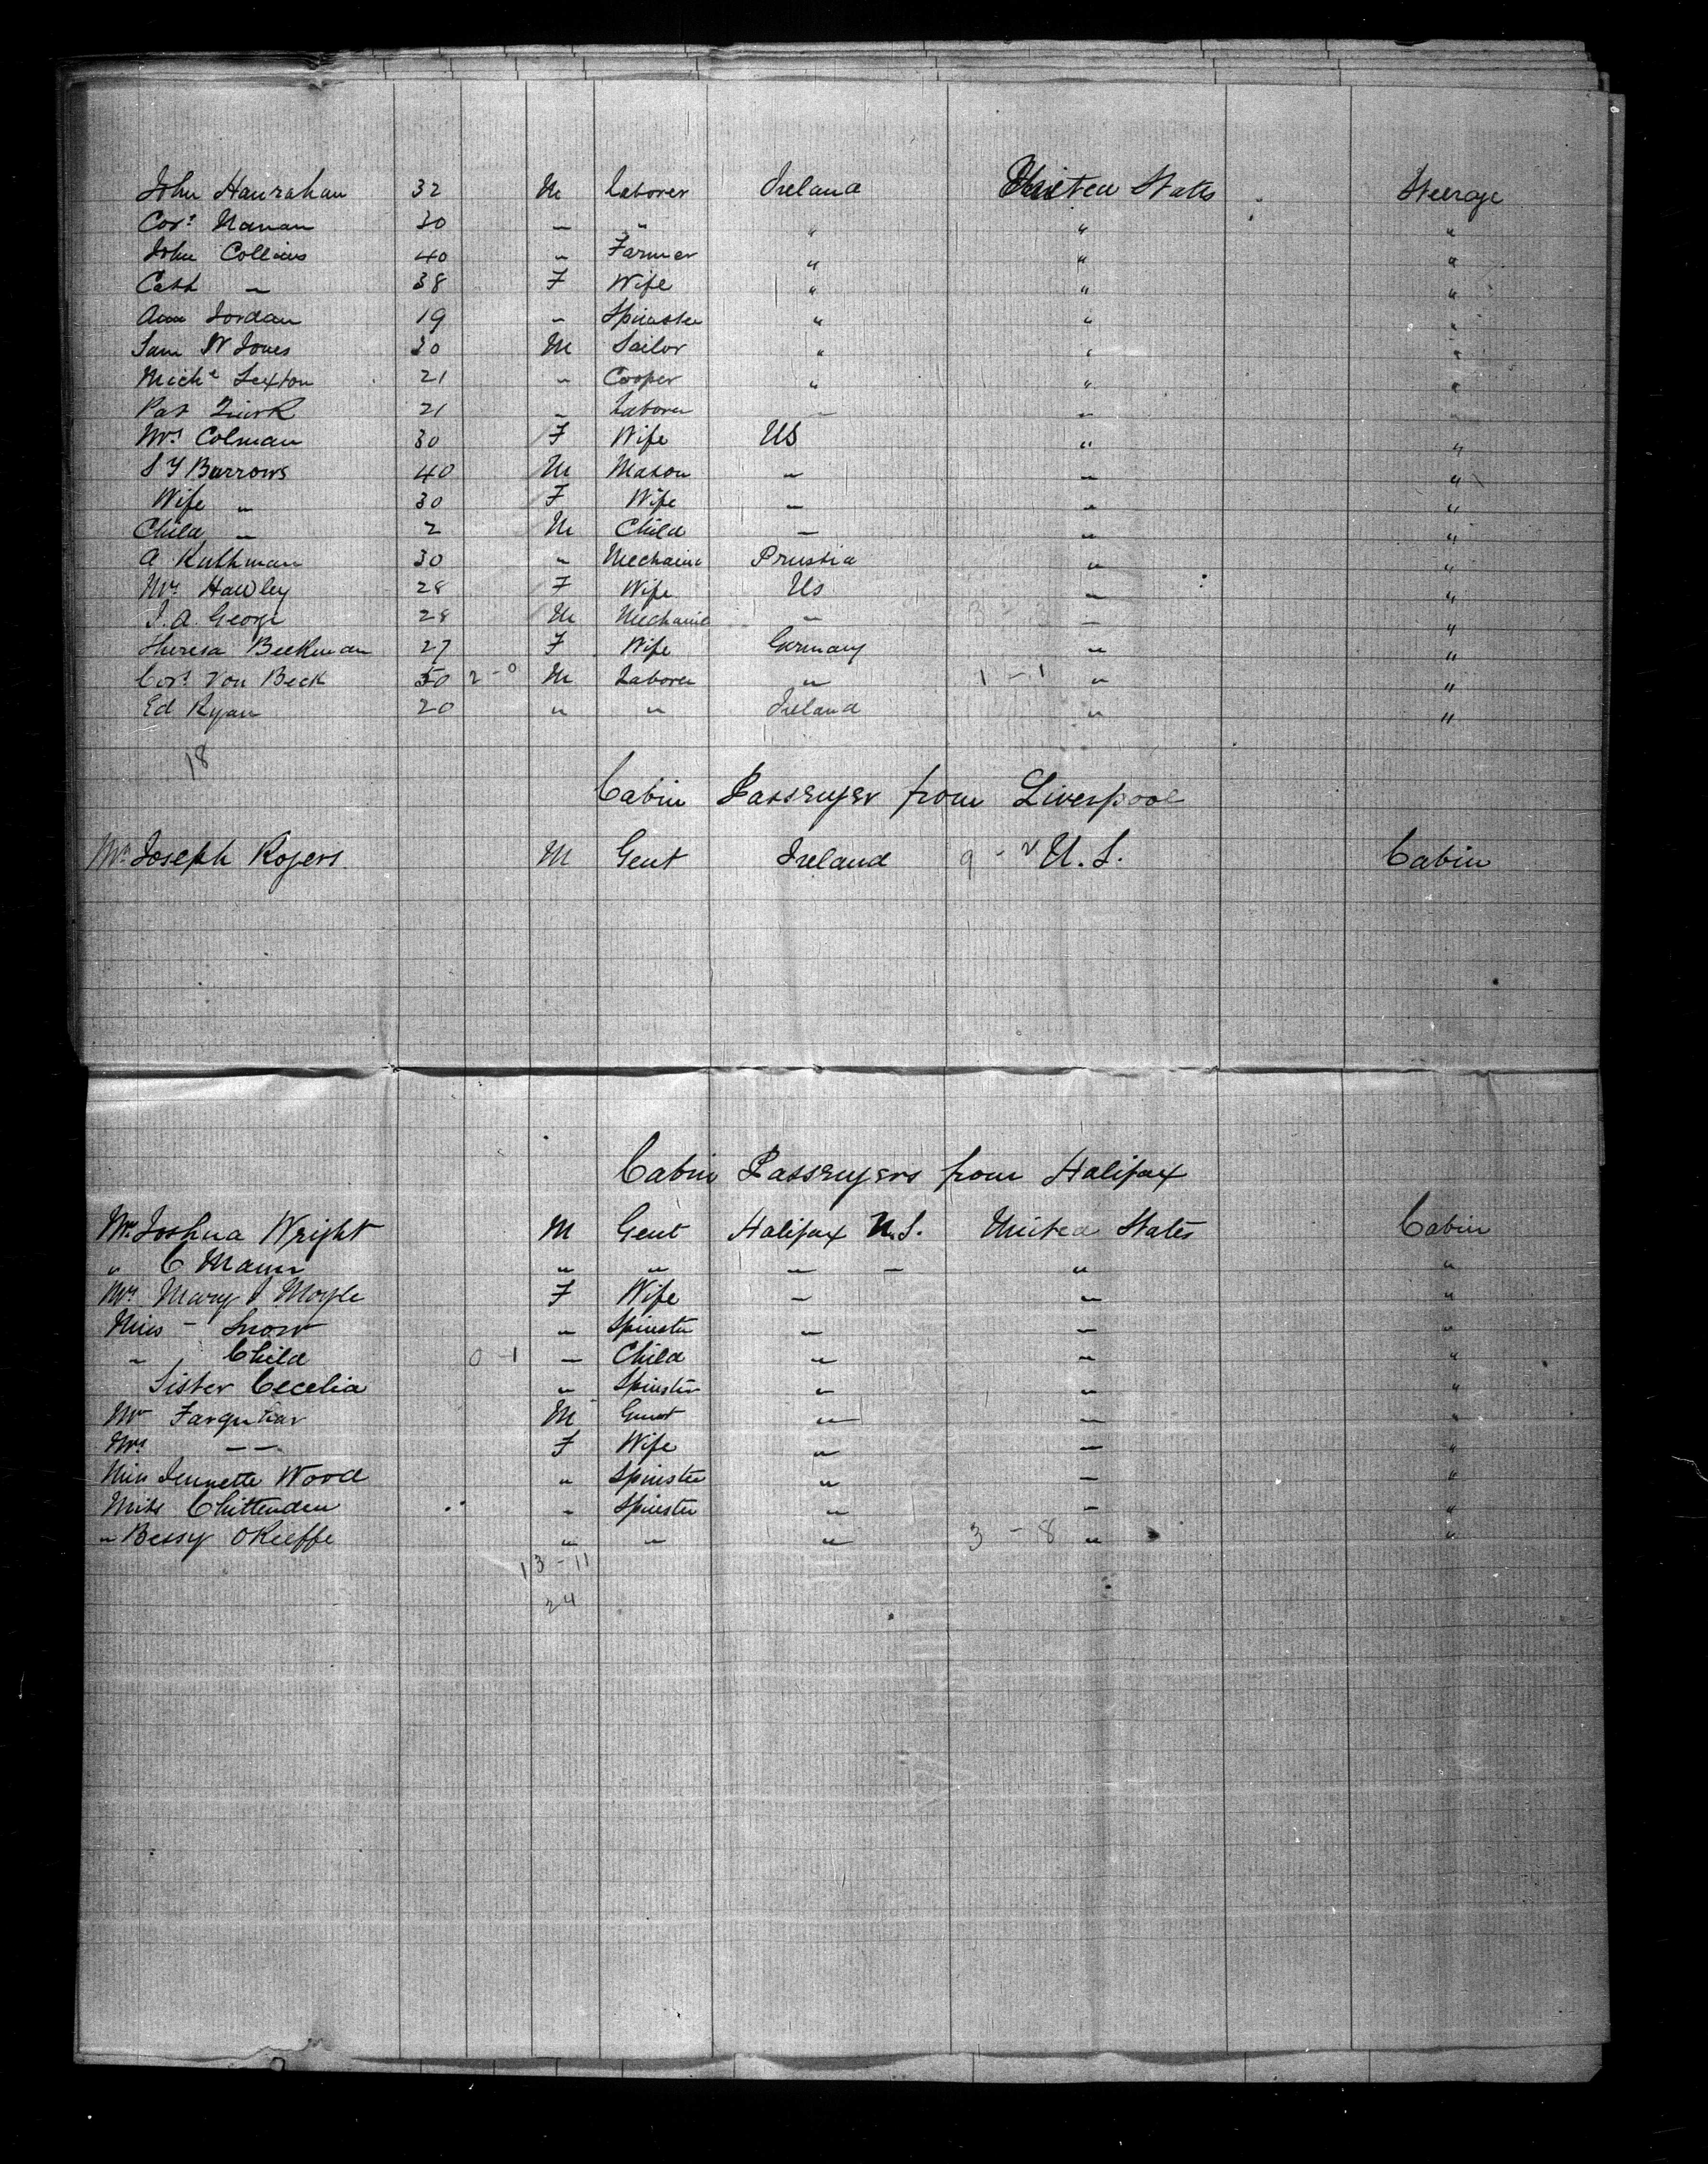 John Hanrahan 32 M Laborer Ireland United States Steerage
Cors Nanan 30 " " " " "
John Collins 40 " Farmer " " "
Cath " 38 F Wife " " "
Ann Jordan 19 " Spinster " " "
Sam W Jones 30 M Sailor " " "
Michl Sexton 21 " Cooper " " "
Pat Quirk 21 " Laborer " " "
Mrs Colman 30 F Wife US " "
S Y Burrows 40 M Mason " " "
Wife " 30 F Wife " " "
Child " 2 M Child " " "
A Kuthman 30 " Mechanic Prussia " "
Mrs Hawley 28 F Wife Us " "
J. A. George 28 M Mechanic " " "
Theresa Beekman 27 F Wife Germany " "
Cors Von Beck 50 2-0 M Laborer " 1-1 " "
Ed Ryan 20 " " Ireland " "
18
Cabin Passenger from Liverpool
Mr Joseph Rogers M Gent Ireland 9-2 U.S. Cabin
Cabin Passengers from Halifax
Mr Joshua Wright M Gent Halifax N.S. United States Cabin
" C Mann " " " " " "
Mrs Mary J Moyle F Wife " " "
Miss - Snow " Spinster " " "
" Child 0-1 " Child " " "
Sister Cecelia " Spinster " " "
Mr Farquhar M Gent " " "
Mrs " F Wife " " "
Miss Jennette Wood " Spinster " " "
Miss Chittenden " Spinster " " "
" Bessy OKeeffe " " " 3-8 " "
13-11
24